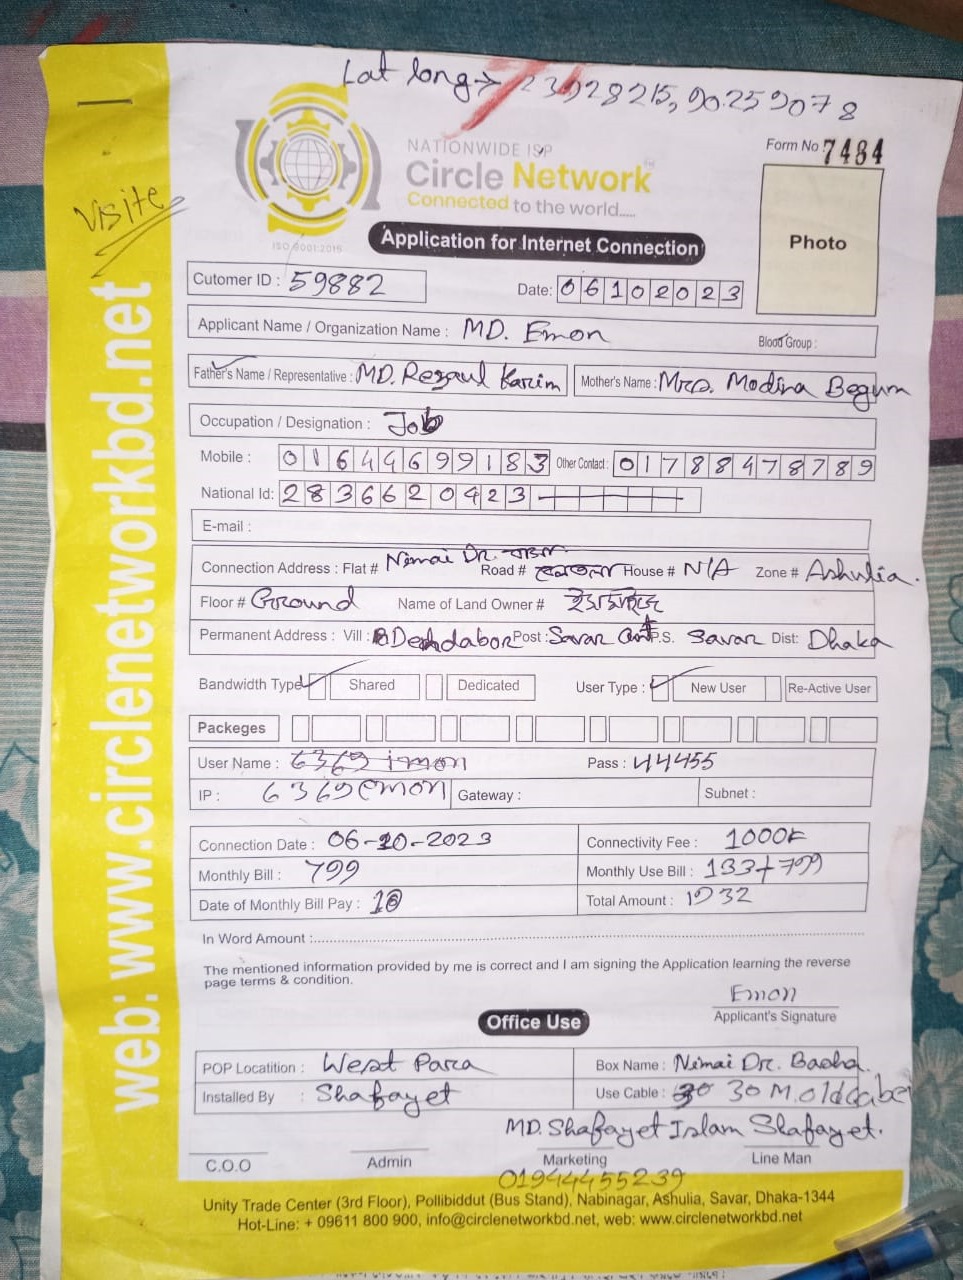 Lat long → 23.928215, 90.259078
NATIONWIDE ISP
Form No 7484
Circle Network
Connected to the world.....
Visite
ISO 9001:2015
Application for Internet Connection
Photo
Cutomer ID : 59882
Date: 06102023
Applicant Name / Organization Name : MD. Emon
Blood Group :
Father's Name / Representative : MD. Rezaul Karim Mother's Name : Mrs. Modina Begum
Occupation / Designation : Job
Mobile : 01644699183 Other Contact : 01788478789
National Id: 2836620423
E-mail :
Connection Address : Flat # Nimai Dr. বাসা Road # House # N/A Zone # Ashulia.
Floor # Ground Name of Land Owner #
Permanent Address : Vill : Dendabor Post : Savar Cant P.S. Savar Dist: Dhaka
Bandwidth Type Shared Dedicated User Type : New User Re-Active User
Packeges
User Name : 6369 imon Pass : 44455
IP : 6369emon Gateway : Subnet :
Connection Date : 06-10-2023 Connectivity Fee : 1000৳
Monthly Bill : 799 Monthly Use Bill : 133+799
Date of Monthly Bill Pay : 10 Total Amount : 1932
In Word Amount :
The mentioned information provided by me is correct and I am signing the Application learning the reverse
page terms & condition.
Emon
Applicant's Signature
Office Use
POP Locatition : West Para Box Name : Nimai Dr. Basha.
Installed By : Shafayet Use Cable : 30 30 M. old cabel
MD. Shafayet Islam Shafayet.
C.O.O Admin Marketing Line Man
01944455239
Unity Trade Center (3rd Floor), Pollibiddut (Bus Stand), Nabinagar, Ashulia, Savar, Dhaka-1344
Hot-Line: + 09611 800 900, info@circlenetworkbd.net, web: www.circlenetworkbd.net
web: www.circlenetworkbd.net